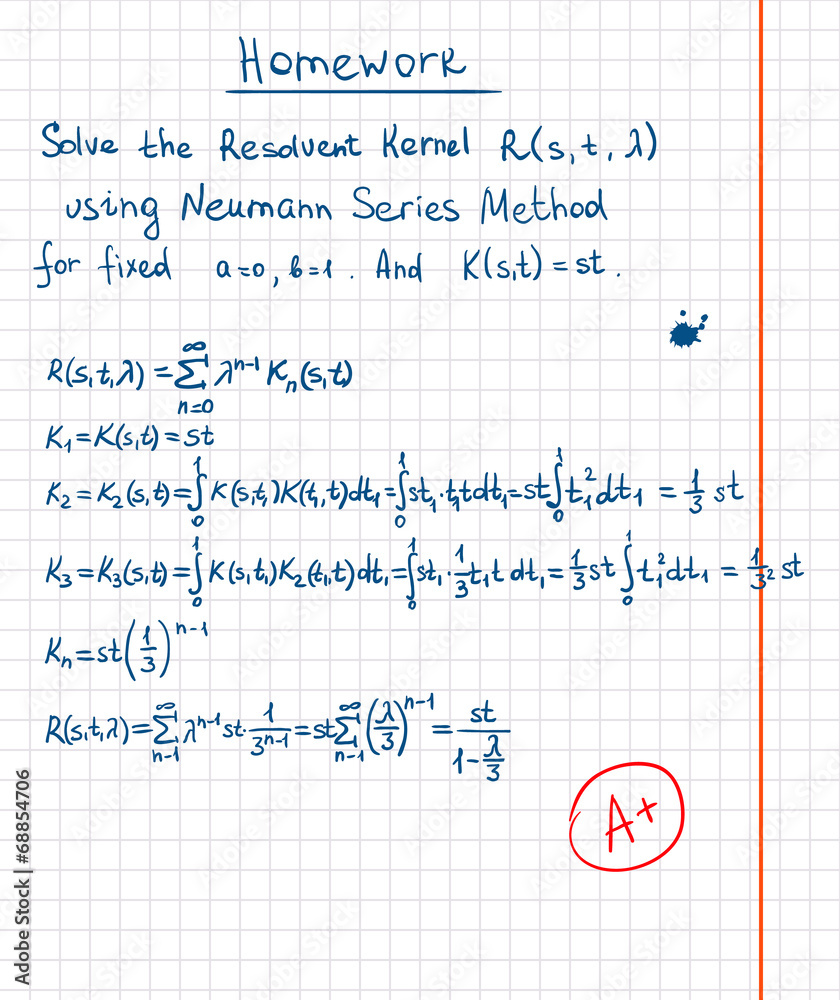 Homework
Solve the Resolvent Kernel R(s,t,λ)
using Neumann Series Method
for fixed a=0, b=1. And K(s,t) = st.
R(s,t,λ) = ∑_{n=0}^{∞} λ^{n-1} K_n(s,t)
K₁ = K(s,t) = st
K₂ = K₂(s,t) = ∫₀¹ K(s,t₁)K(t₁,t)dt₁ = ∫₀¹ st₁·t₁tdt₁ = st∫₀¹ t₁²dt₁ = 1/3 st
K₃ = K₃(s,t) = ∫₀¹ K(s,t₁)K₂(t₁,t)dt₁ = ∫₀¹ st₁·1/3 t₁t dt₁ = 1/3 st ∫₀¹ t₁²dt₁ = 1/3² st
K_n = st(1/3)^{n-1}
R(s,t,λ) = ∑_{n-1}^{∞} λ^{n-1} st·1/3^{n-1} = st∑_{n-1}^{∞} (λ/3)^{n-1} = st/(1-λ/3)
A+
Adobe Stock | #68854706